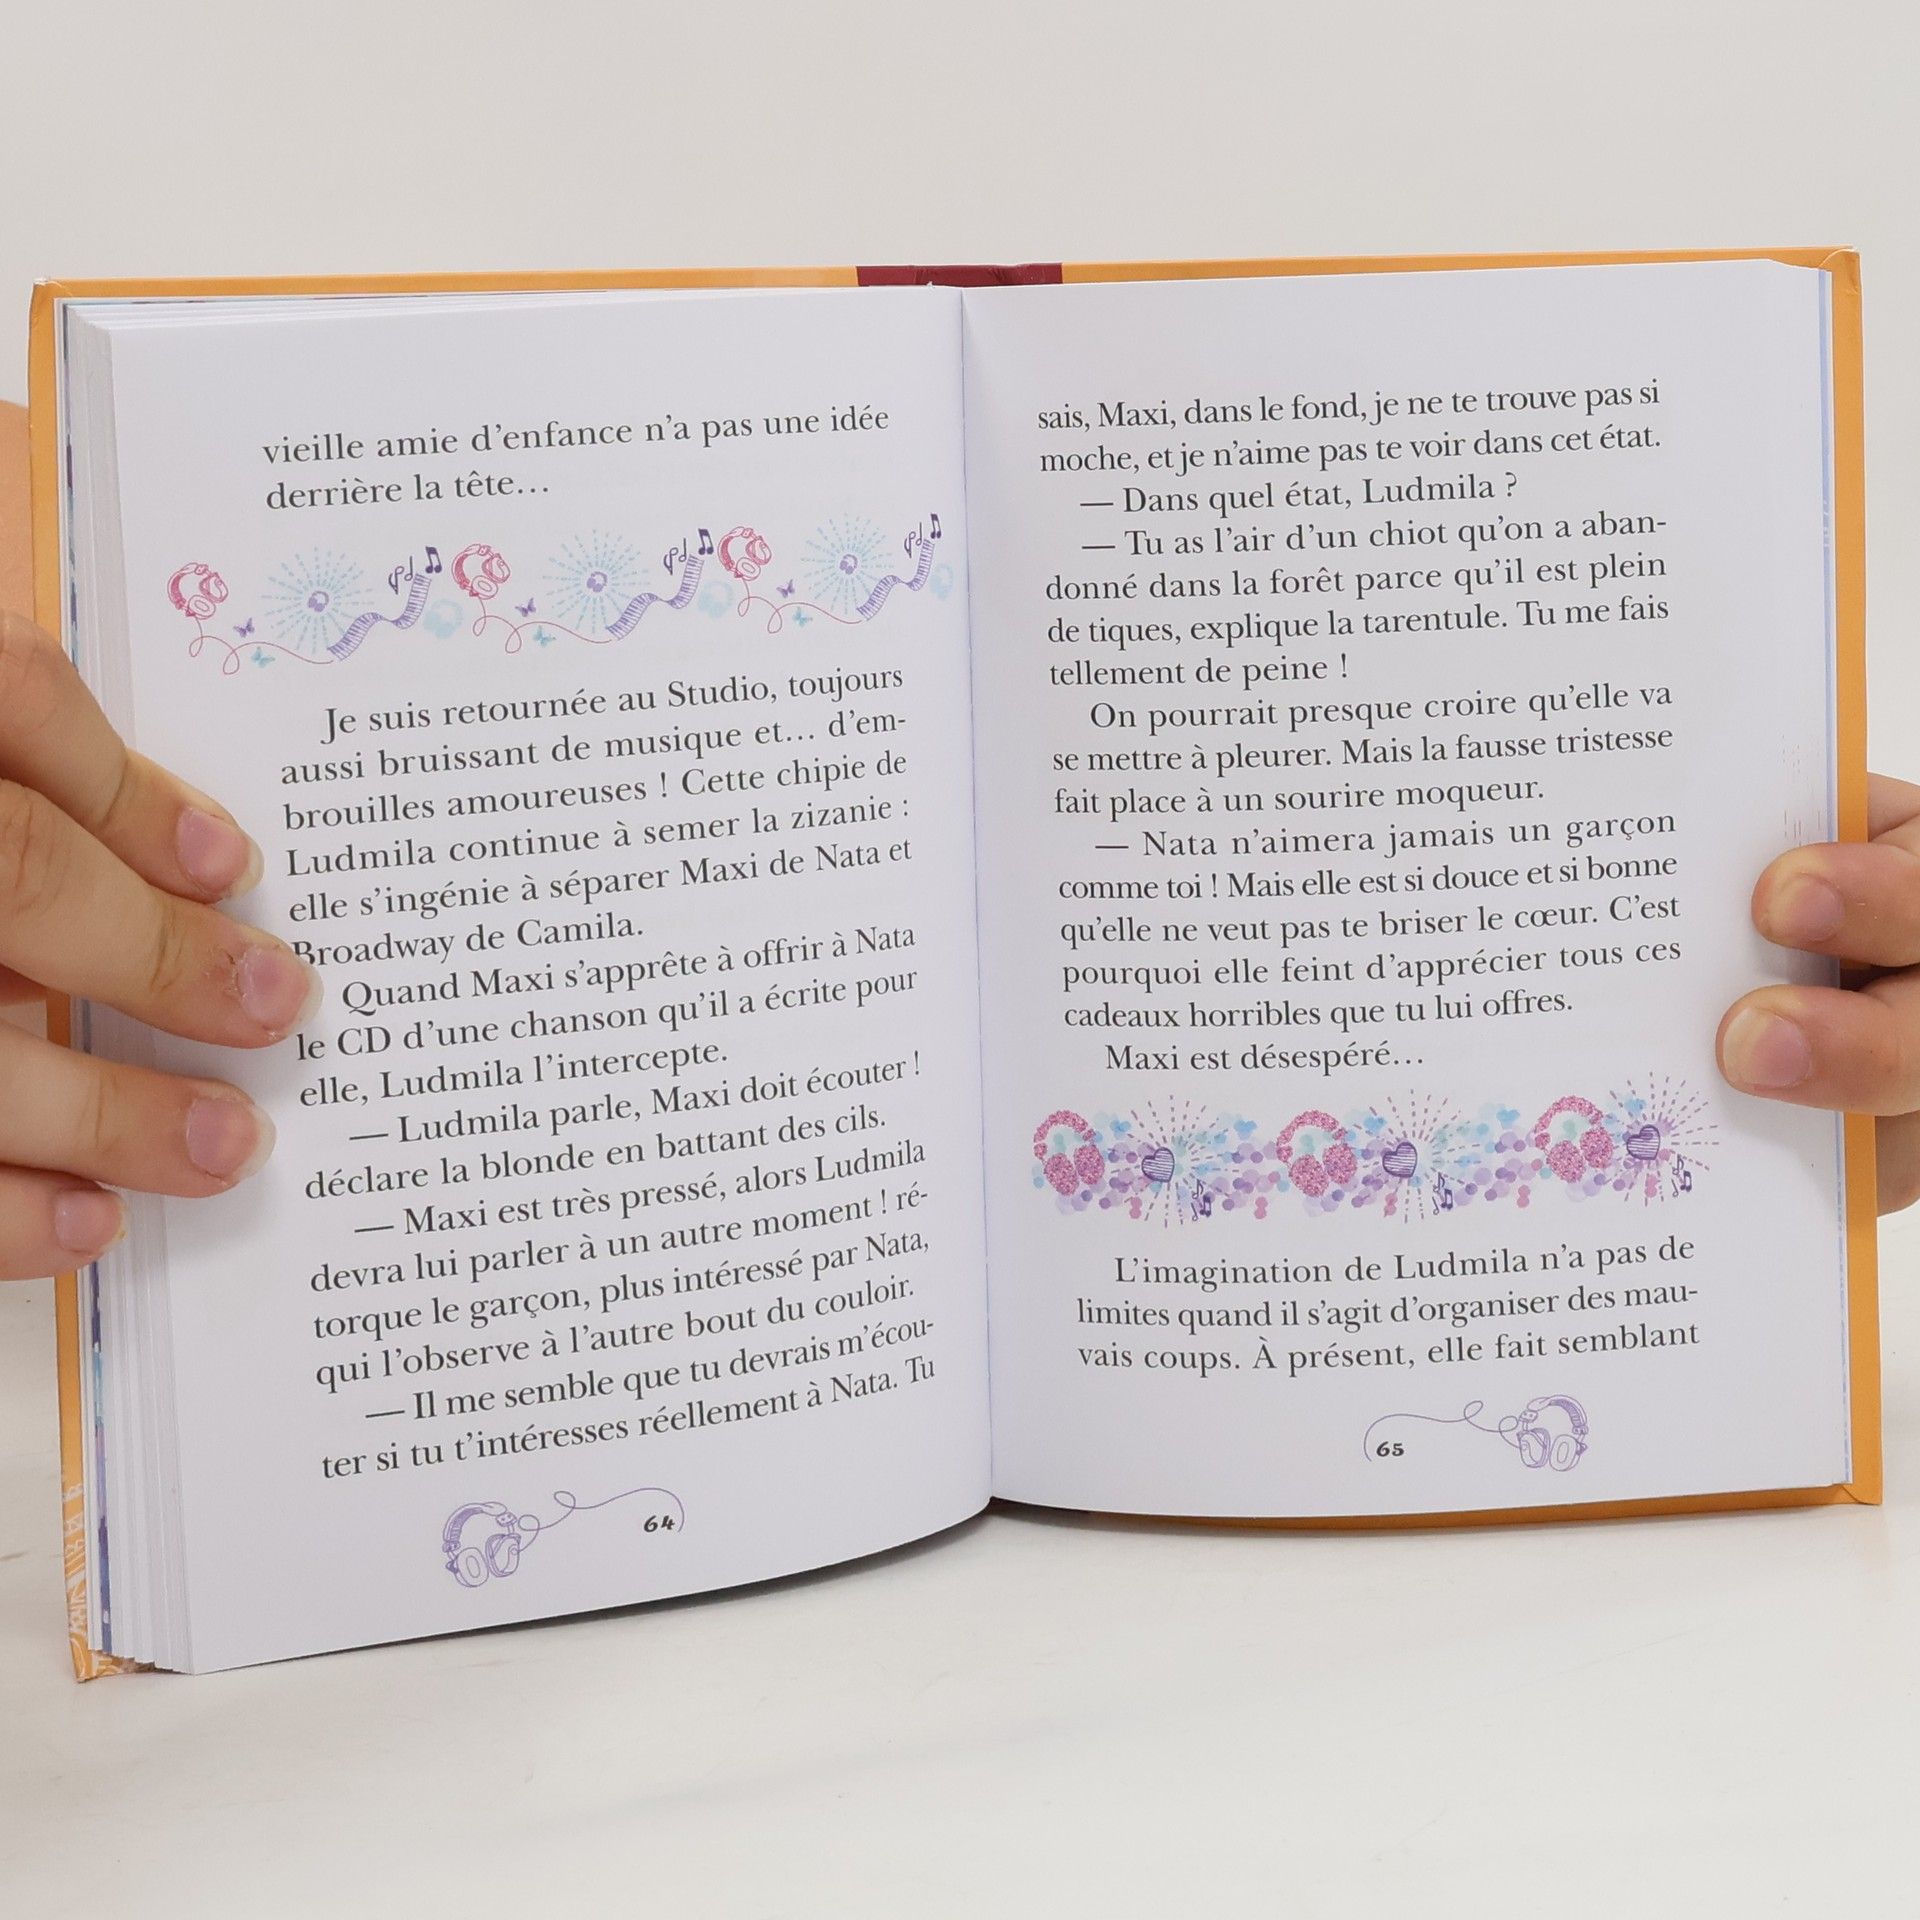 vieille amie d'enfance n'a pas une idée
derrière la tête...
Je suis retournée au Studio, toujours
aussi bruissant de musique et... d'em-
brouilles amoureuses ! Cette chipie de
Ludmila continue à semer la zizanie :
elle s'ingénie à séparer Maxi de Nata et
Broadway de Camila.
Quand Maxi s'apprête à offrir à Nata
le CD d'une chanson qu'il a écrite pour
elle, Ludmila l'intercepte.
— Ludmila parle, Maxi doit écouter !
déclare la blonde en battant des cils.
— Maxi est très pressé, alors Ludmila
devra lui parler à un autre moment ! ré-
torque le garçon, plus intéressé par Nata,
qui l'observe à l'autre bout du couloir.
— Il me semble que tu devrais m'écou-
ter si tu t'intéresses réellement à Nata. Tu
64
sais, Maxi, dans le fond, je ne te trouve pas si
moche, et je n'aime pas te voir dans cet état.
— Dans quel état, Ludmila ?
— Tu as l'air d'un chiot qu'on a aban-
donné dans la forêt parce qu'il est plein
de tiques, explique la tarentule. Tu me fais
tellement de peine !
On pourrait presque croire qu'elle va
se mettre à pleurer. Mais la fausse tristesse
fait place à un sourire moqueur.
— Nata n'aimera jamais un garçon
comme toi ! Mais elle est si douce et si bonne
qu'elle ne veut pas te briser le cœur. C'est
pourquoi elle feint d'apprécier tous ces
cadeaux horribles que tu lui offres.
Maxi est désespéré...
L'imagination de Ludmila n'a pas de
limites quand il s'agit d'organiser des mau-
vais coups. À présent, elle fait semblant
65